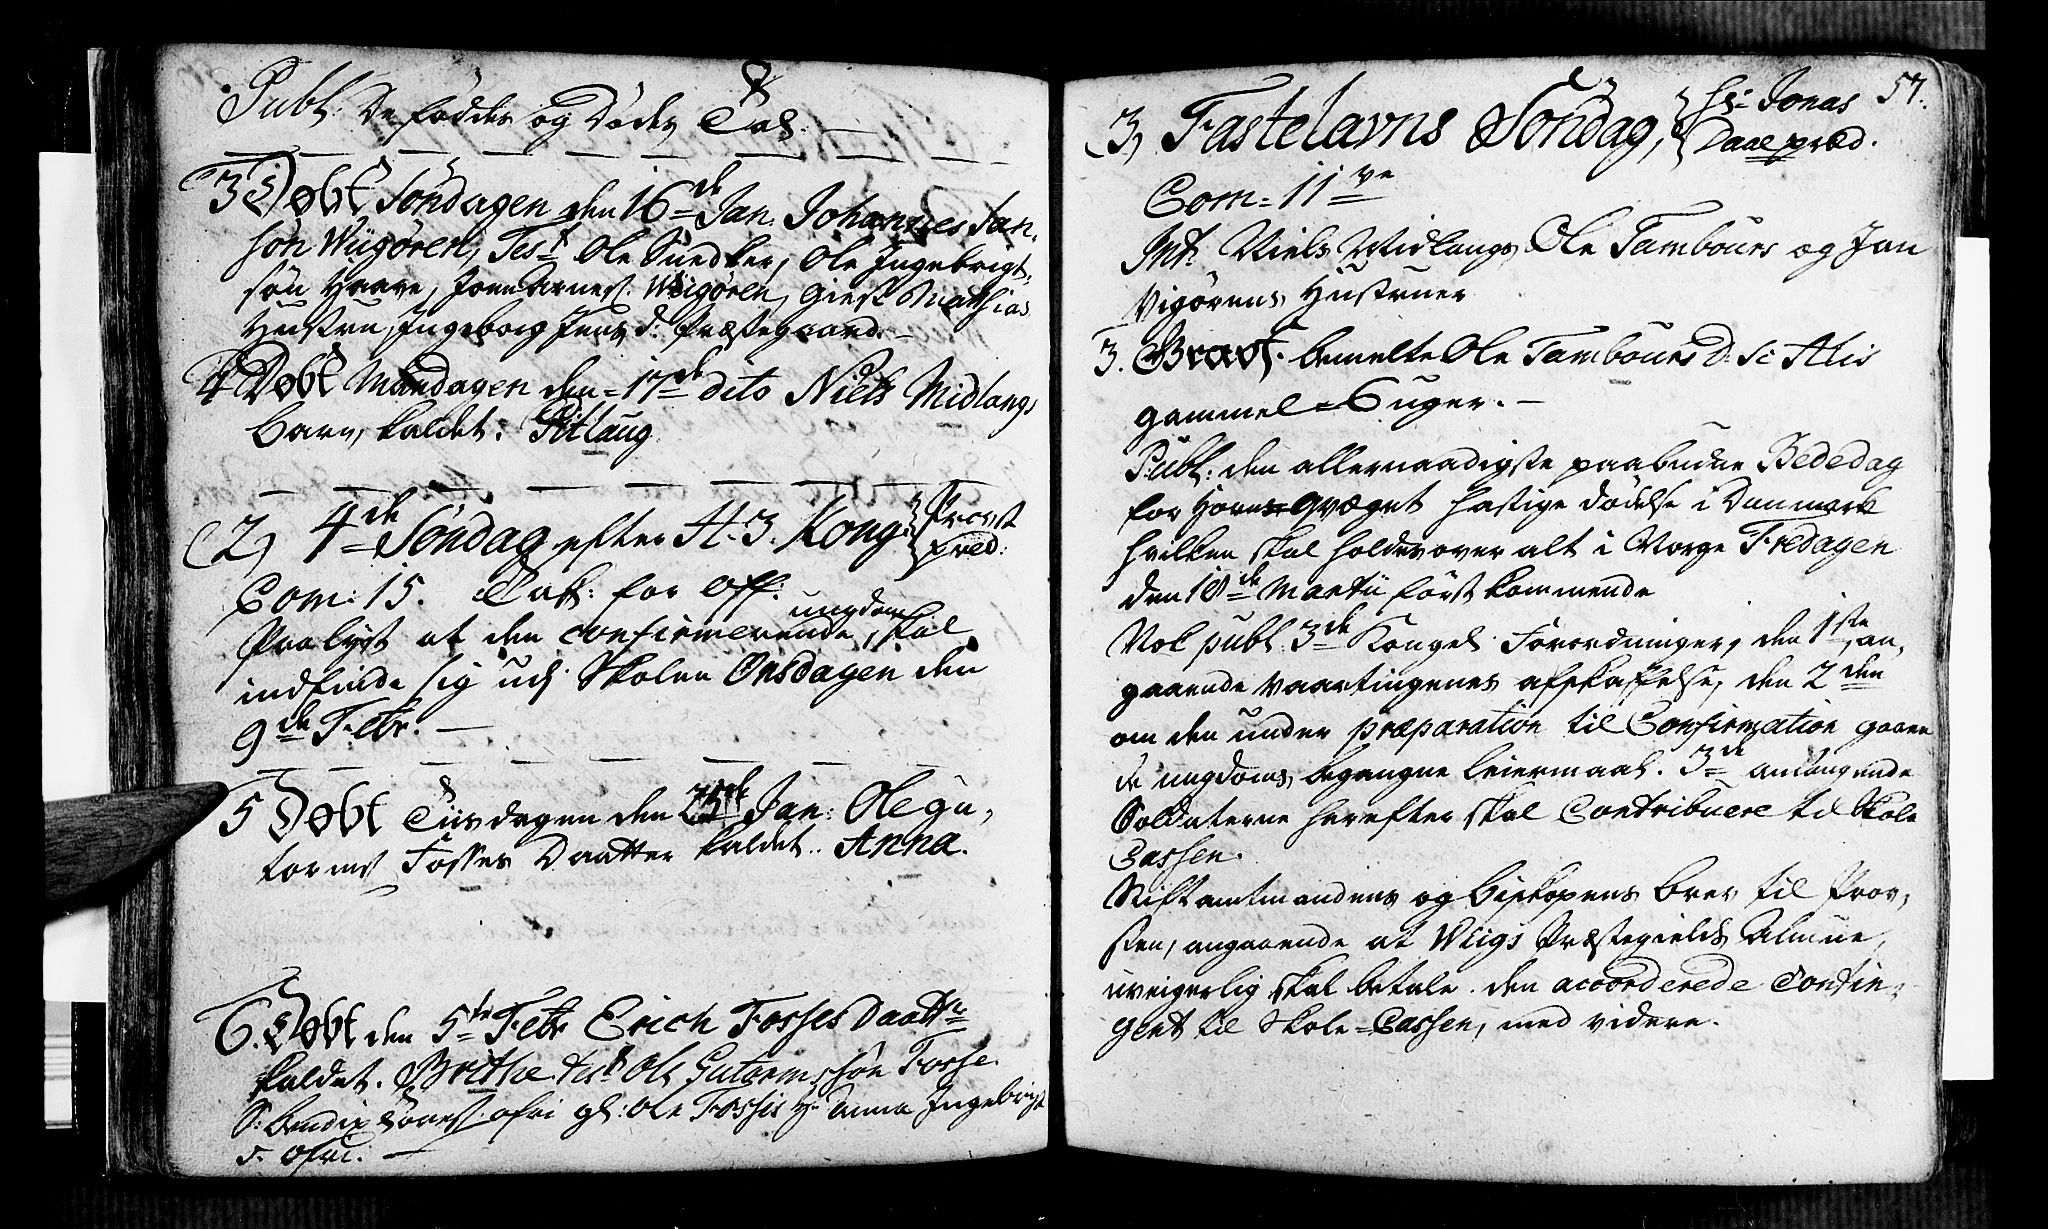 Publ: De föddes og Dödes Tal. —
3 Döbt Söndagen den 16de Jan. Johannes Jan-
sön Wiigören, Test Ole Suedker, Ole Ingebrigt-
sön Haave, Joen Arnes. Wiigören, Giert Mathias
Hustru, Ingeborg Jens d: Præstegaard. —
4 Döbt Mandagen den 17de dito Niels Midlangs
barn, kaldet: Gitlaug
(2) 4de Söndag efter H. 3. Kong: Provst præd:
Com: 15. Tak: for Off.
Paalyst at den confirmerende ungdom skal
indfinde sig udj Skolen Onsdagen den
9de Febr. —
5 Döbt Tiisdagen den 25de Jan: Ole Gu-
torms Fosses Daatter kaldet: Anna.
6. Döbt den 5te Febr Erich Fosses Daatter
kaldet. Brithe test Ole Gutormssön Fosse.
S: bendix Ofri gl: Ole Fossis H: Anna Ingebrigt
d. Ofri. —
57.
(3) Fastelavns Söndag, Hr: Jonas Daae præd.
Com = 11ve
Int: Niels Midlangs, Ole Tambours og Jan
Vigörens Hustruer
3. Bravf. bemelte Ole Tambours D: S: Alis
gammel = 6 uger. —
Publ: den allernaadigste paabudne Bededag
for Horn-qvægets hastige dödelse i Danmark
hvilken skal holdes over alt i Norge Fredagen
den 18de Martii först kommende
Nok publ. 3de Kongel. Forordninger, den 1ste an-
gaaende Vaartingenes afskaffelse, den 2den
om den under præparation til Confirmation gaaen-
de ungdoms begangne leiermaal. 3de anlangende
Soldaterne herefter skal Contribuere til Skole
Cassen.
Stiftamtmandens og biskopens brev til Prov-
sten, angaaende at Wiigs Præstegields Almue,
uveigerlig skal betale den accorderede Contin-
gent til Skole-Cassen, med videre.